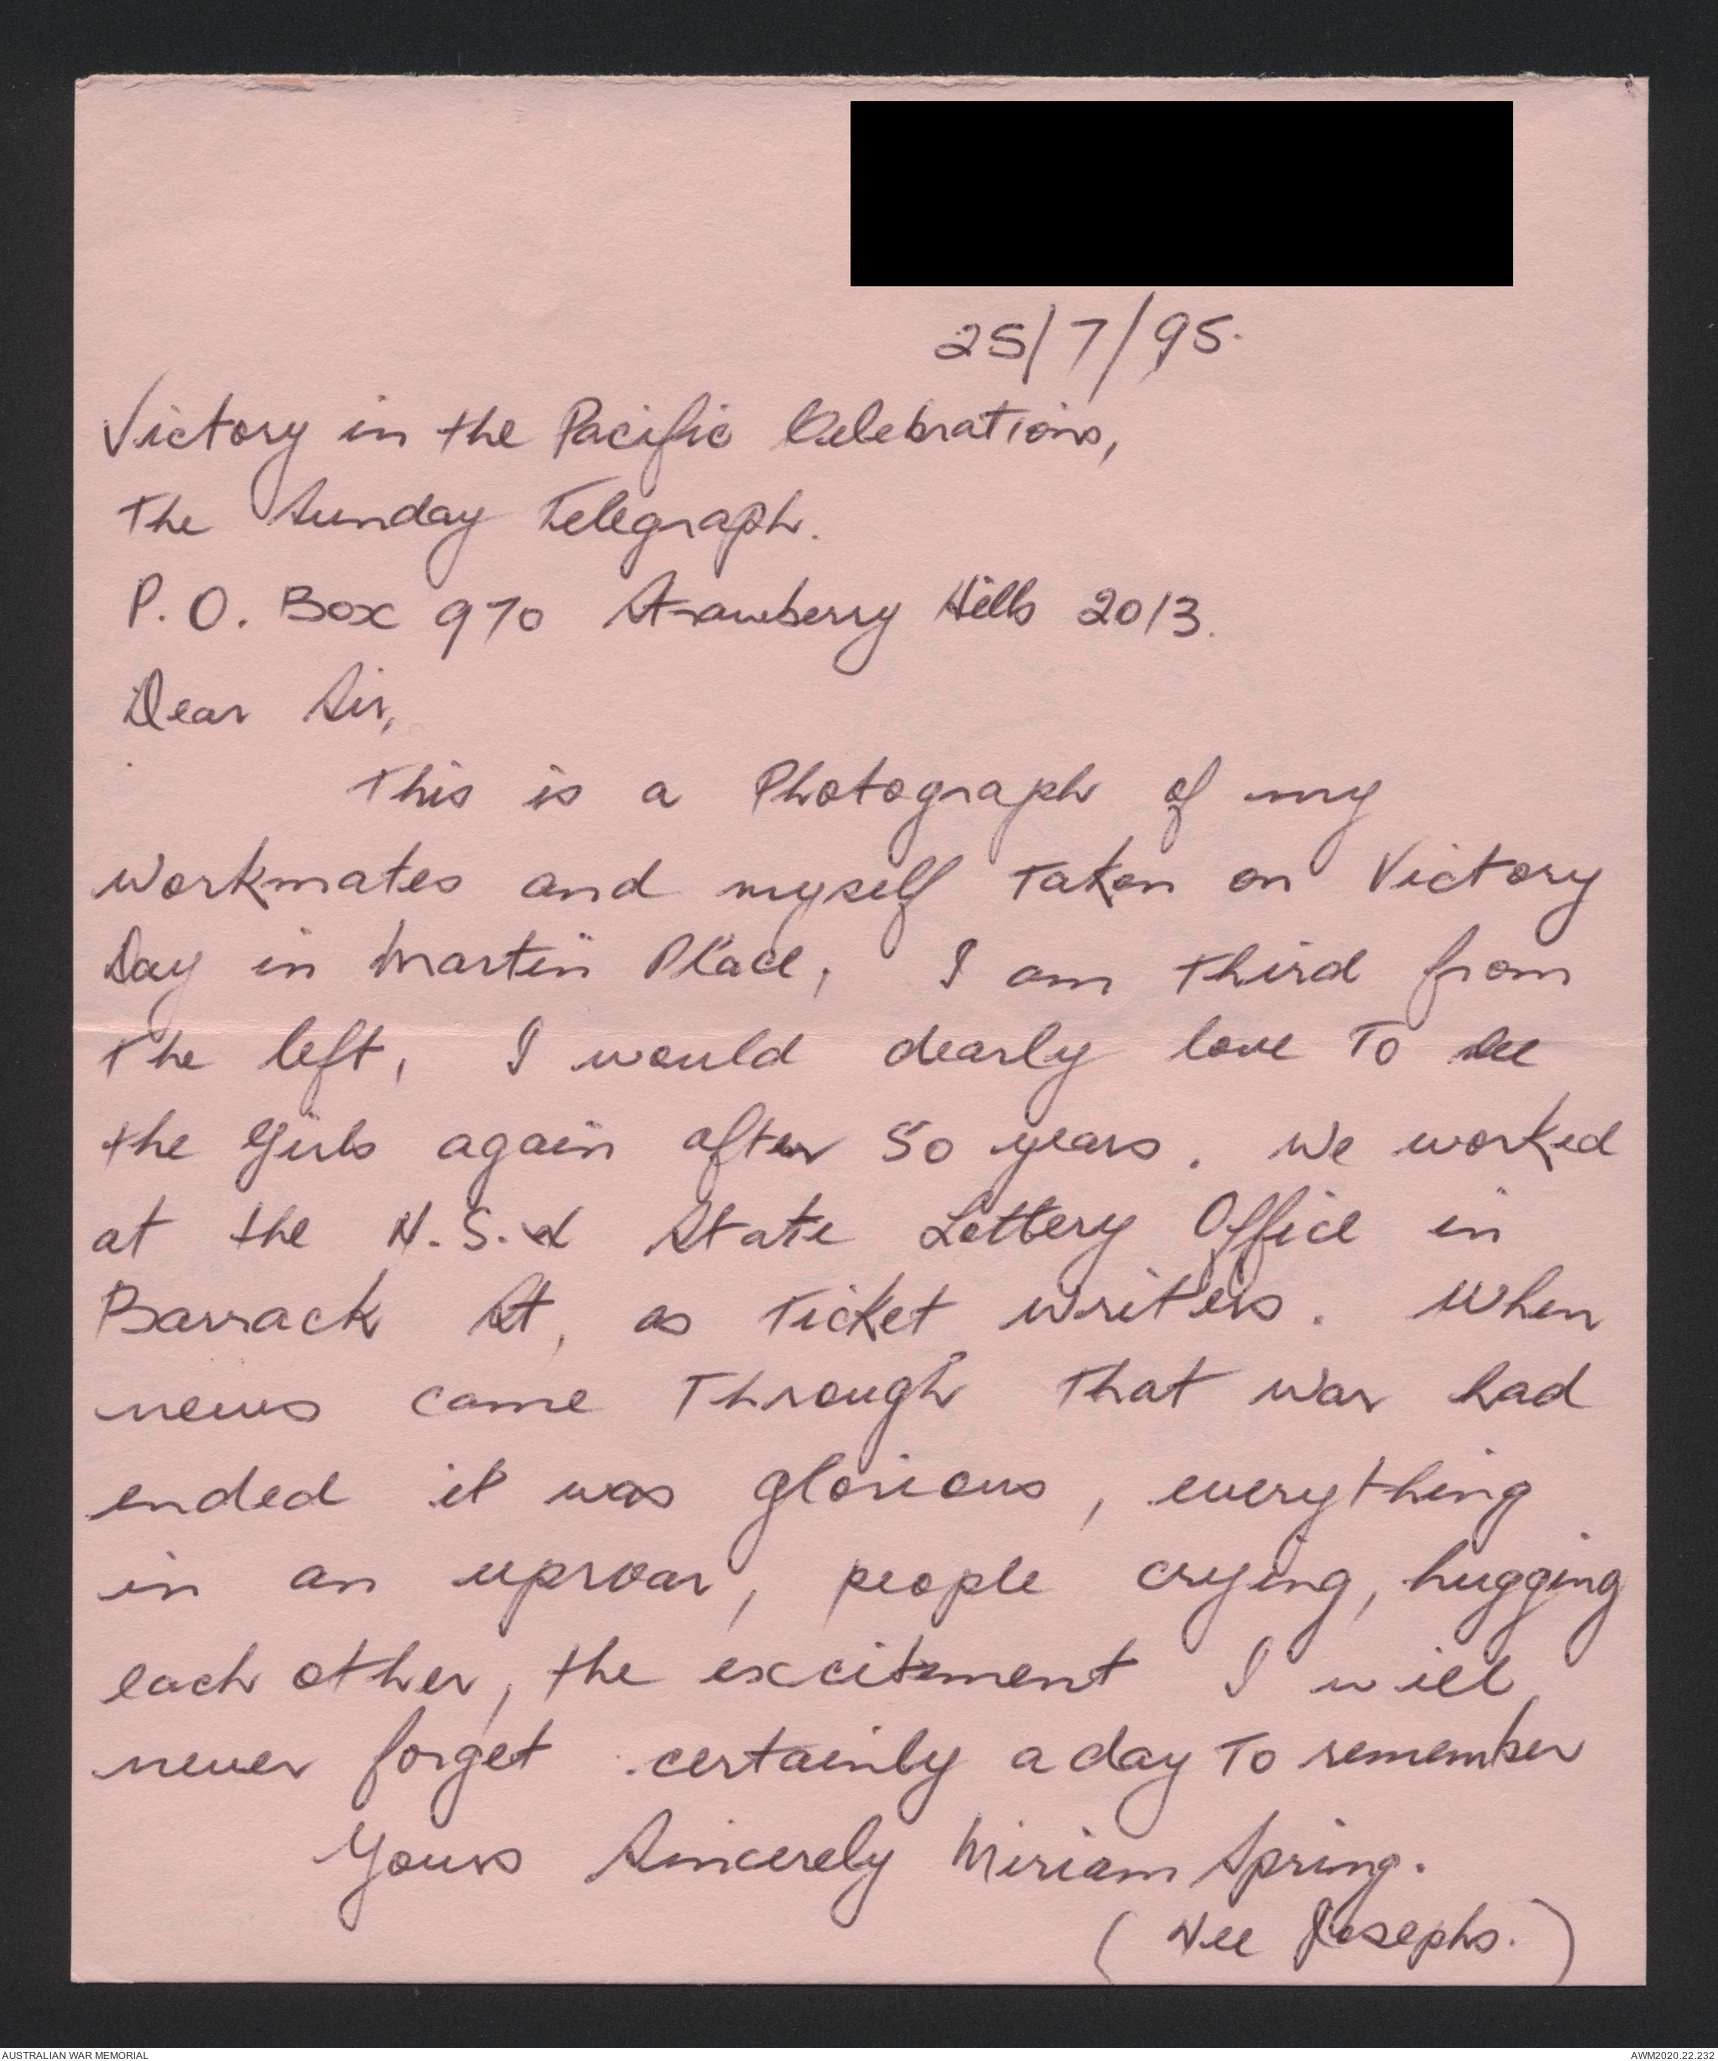 25/7/95.
Victory in the Pacific Celebrations,
The Sunday Telegraph.
P.O. Box 970 Strawberry Hills 2013.
Dear Sir,
This is a Photograph of my
workmates and myself Taken on Victory
Day in Martin Place, I am third from
the left, I would dearly love To see
the Girls again after 50 years. We worked
at the N.S.W State Lottery Office in
Barrack St, as Ticket writers. When
news came Through That war had
ended it was glorious, everything
in an uproar, people crying, hugging
each other, the excitement I will
never forget certainly a day To remember
Yours Sincerely Miriam Spring.
(Nee Josephs.)
AUSTRALIAN WAR MEMORIAL
AWM2020.22.232